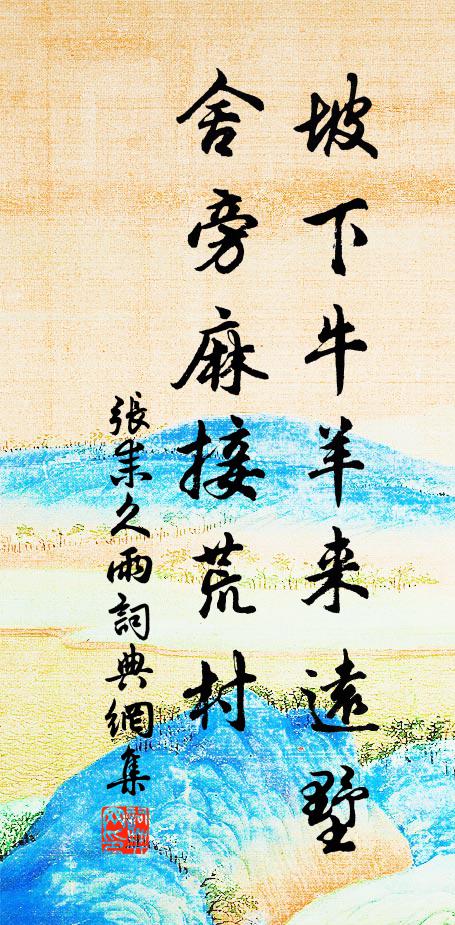 坡下牛羊来遠墅
舍旁麻接荒村
張耒久雨詞典網集